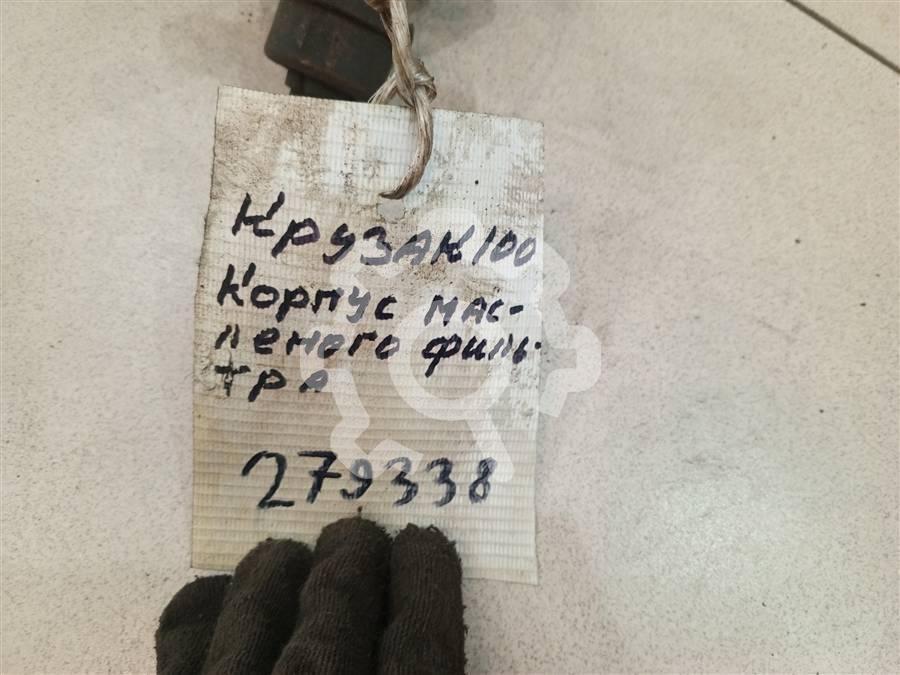 Крузак 100
Корпус мас-
леного филь-
тра
279338